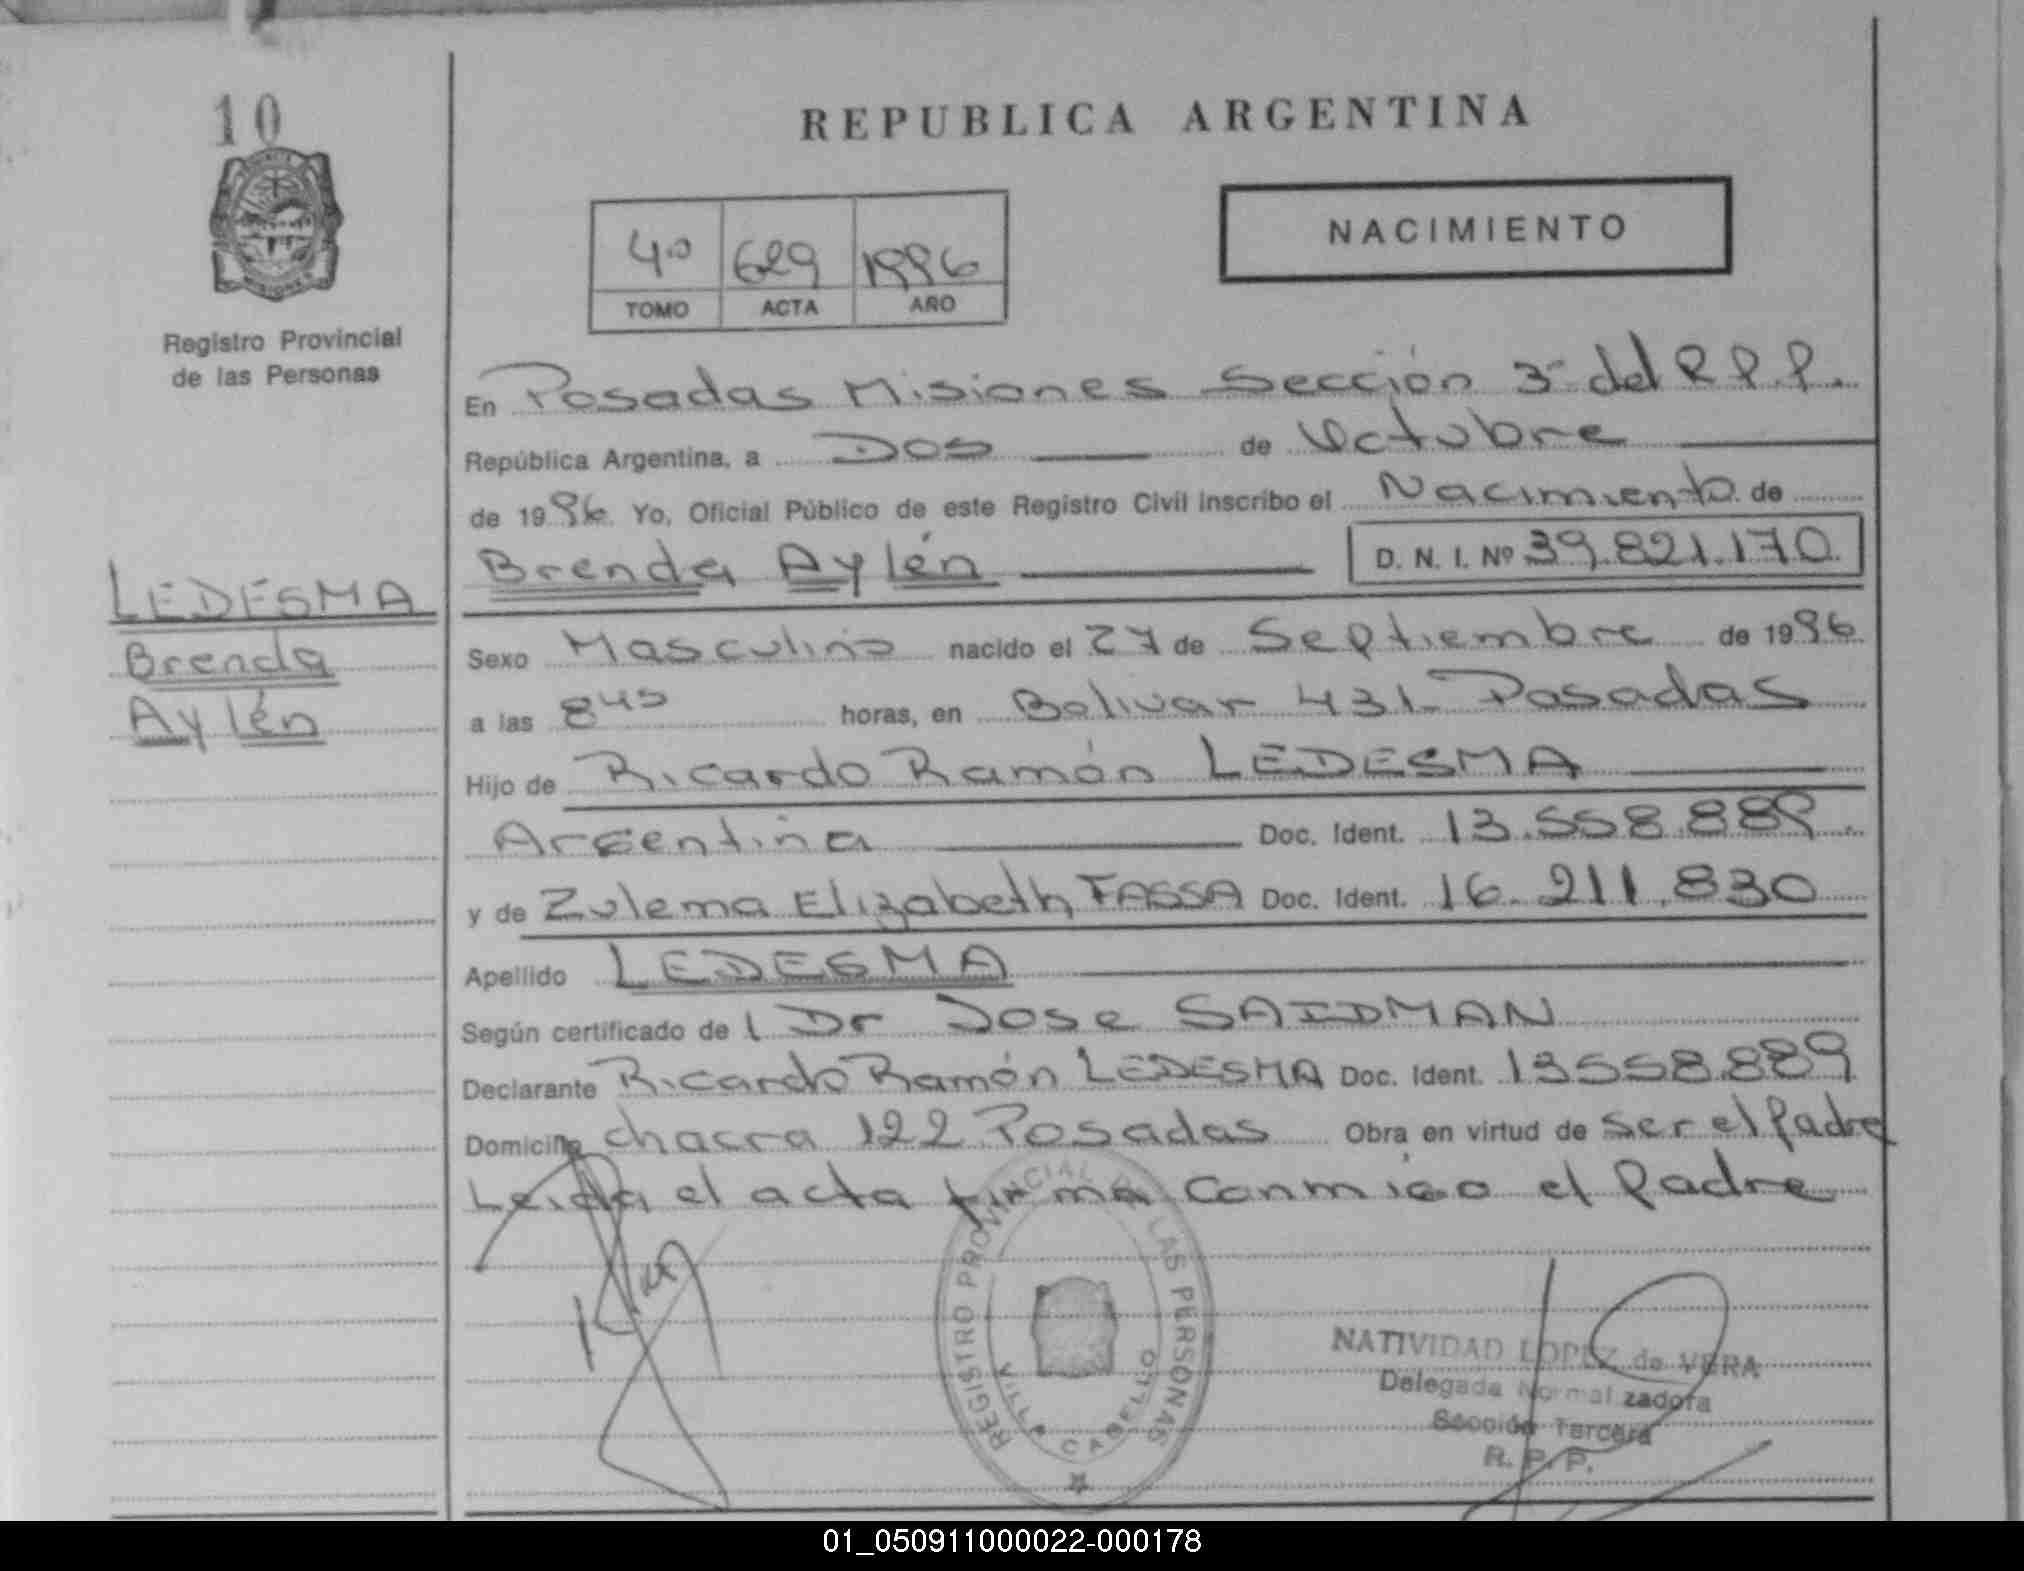 10
Registro Provincial
de las Personas
LEDESMA
Brenda
Aylén
REPUBLICA ARGENTINA
NACIMIENTO
4º 629 1996
TOMO ACTA AÑO
En Posadas Misiones Sección 3ª del R.P.P.
República Argentina, a Dos de Octubre
de 1996. Yo, Oficial Público de este Registro Civil inscribo el Nacimiento de
Brenda Aylén D. N. I. Nº 39.821.170
Sexo Masculino nacido el 27 de Septiembre de 1996
a las 8 45 horas, en Bolivar 431 Posadas
Hijo de Ricardo Ramón LEDESMA
Argentina Doc. Ident. 13.558.889
y de Zulema Elizabeth FASSA Doc. Ident. 16.211.830
Apellido LEDESMA
Según certificado de l Dr Jose SAIDMAN
Declarante Ricardo Ramón LEDESMA Doc. Ident. 13558.889
Domicilio chacra 122 Posadas Obra en virtud de ser el Padre
Leida el acta firma conmigo el Padre
REGISTRO PROVINCIAL DE LAS PERSONAS
VILLA CABELLO
NATIVIDAD LOPEZ de VERA
Delegada Normalizadora
Sección Tercera
R. P. P.
01_050911000022-000178